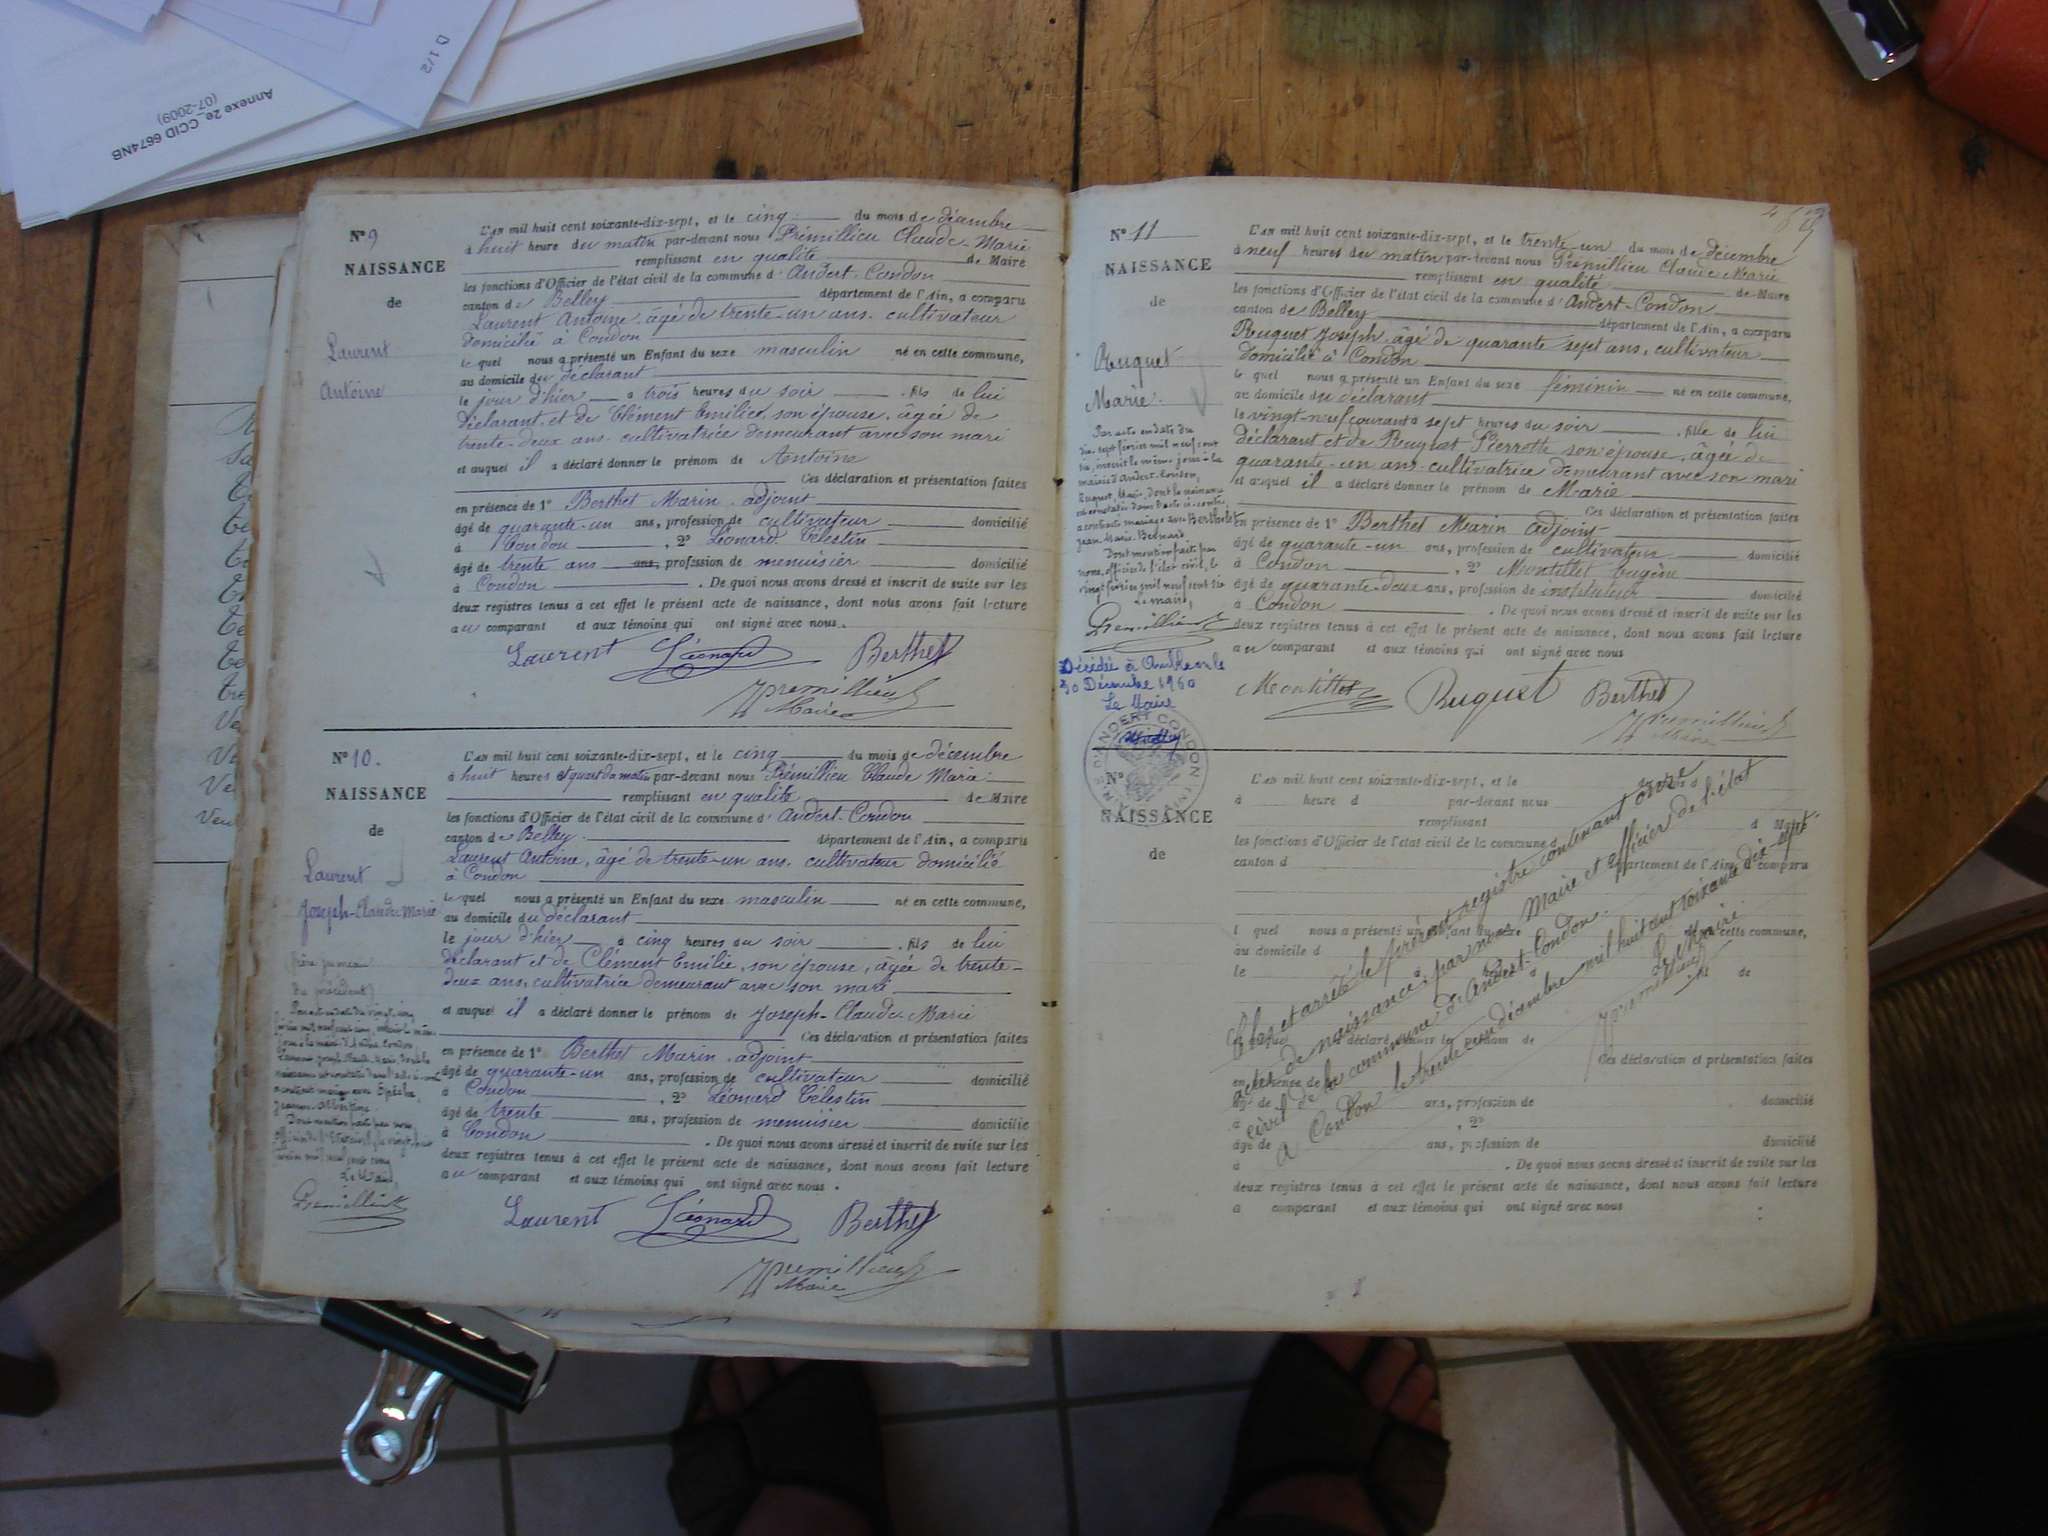 D 1/2
Annexe 2e, CCID 6674NB
(07-2009)
N° 9
NAISSANCE
de
Laurent
Antoine
L'an mil huit cent soixante-dix-sept, et le cinq du mois de décembre
à huit heure du matin par-devant nous Prémillieu Claude Marie
remplissant en qualité de Maire
les fonctions d'Officier de l'état civil de la commune d'Andert-Condon
canton de Belley département de l'Ain, a comparu
Laurent Antoine, âgé de trente-un ans, cultivateur
domicilié à Condon
le quel nous a présenté un Enfant du sexe masculin né en cette commune,
au domicile du déclarant
le jour d'hier à trois heures du soir fils de lui
déclarant et de Clément Emilie, son épouse, âgée de
trente-deux ans, cultivatrice demeurant avec son mari
et auquel il a déclaré donner le prénom de Antoine
Ces déclaration et présentation faites
en présence de 1° Berthet Marin adjoint
âgé de quarante-un ans, profession de cultivateur domicilié
à Condon, 2° Léonard Célestin
âgé de trente ans ans, profession de menuisier domicilié
à Condon. De quoi nous avons dressé et inscrit de suite sur les
deux registres tenus à cet effet le présent acte de naissance, dont nous avons fait lecture
au comparant et aux témoins qui ont signé avec nous.
Laurent Léonard Berthet
Premillieu
Maire
N° 10.
NAISSANCE
de
Laurent
Joseph-Claude-Marie
frère jumeau
du précédent
L'an mil huit cent soixante-dix-sept, et le cinq du mois de décembre
à huit heures et quart du matin par-devant nous Prémillieu Claude Marie
remplissant en qualité de Maire
les fonctions d'Officier de l'état civil de la commune d'Andert-Condon
canton de Belley département de l'Ain, a comparu
Laurent Antoine, âgé de trente-un ans, cultivateur domicilié
à Condon
le quel nous a présenté un Enfant du sexe masculin né en cette commune,
au domicile du déclarant
le jour d'hier à cinq heures du soir fils de lui
déclarant et de Clément Emilie, son épouse, âgée de trente-
deux ans, cultivatrice demeurant avec son mari
et auquel il a déclaré donner le prénom de Joseph-Claude-Marie
Ces déclaration et présentation faites
en présence de 1° Berthet Marin adjoint
âgé de quarante-un ans, profession de cultivateur domicilié
à Condon, 2° Léonard Célestin
âgé de trente ans, profession de menuisier domicilié
à Condon. De quoi nous avons dressé et inscrit de suite sur les
deux registres tenus à cet effet le présent acte de naissance, dont nous avons fait lecture
au comparant et aux témoins qui ont signé avec nous.
Le Maire,
Premillieu
Laurent Léonard Berthet
Premillieu
Maire
N° 11
NAISSANCE
de
Ruguet
Marie
L'an mil huit cent soixante-dix-sept, et le trente-un du mois de décembre
à neuf heures du matin par-devant nous Premillieu Claude Marie
remplissant en qualité de Maire
les fonctions d'Officier de l'état civil de la commune d'Andert-Condon
canton de Belley département de l'Ain, a comparu
Ruguet Joseph âgé de quarante sept ans, cultivateur
domicilié à Condon
le quel nous a présenté un Enfant du sexe féminin né en cette commune,
au domicile du déclarant
le vingt-neuf courant à sept heures du soir fille de lui
déclarant et de Pierrette son épouse, âgée de
quarante-un ans, cultivatrice demeurant avec son mari
et auquel il a déclaré donner le prénom de Marie
Ces déclaration et présentation faites
en présence de 1° Berthet Marin adjoint
âgé de quarante-un ans, profession de cultivateur domicilié
à Condon, 2° Montillet Eugène
âgé de quarante-deux ans, profession de instituteur domicilié
à Condon. De quoi nous avons dressé et inscrit de suite sur les
deux registres tenus à cet effet le présent acte de naissance, dont nous avons fait lecture
au comparant et aux témoins qui ont signé avec nous
Par acte en date du
dix sept février mil neuf cent
inscrit le même jour à la
mairie d'Andert-Condon,
Ruguet, Marie, dont la naissance
est constatée dans l'acte ci-contre,
a contracté mariage avec Berthelet
Jean Marie Bernard
Dont mention faite par
nous, officier de l'état civil, le
vingt février mil neuf cent
Le maire,
Premillieu
Montillet Ruguet Berthet
Premillieu
Maire
Décédée à le
30 Décembre 1960
Le Maire
ANDERT CONDON
N°
NAISSANCE
de
L'an mil huit cent soixante-dix-sept, et le
à heure d par-devant nous
remplissant d Maire
les fonctions d'Officier de l'état civil de la commune d
canton d département de l'Ain, a comparu
l quel nous a présenté un Enfant du sexe né en cette commune,
au domicile d
le à d fil de
et auquel a déclaré donner le prénom de
Ces déclaration et présentation faites
en présence de 1°
âgé de ans, profession de domicilié
à , 2°
âgé de ans, profession de domicilié
à . De quoi nous avons dressé et inscrit de suite sur les
deux registres tenus à cet effet le présent acte de naissance, dont nous avons fait lecture
a comparant et aux témoins qui ont signé avec nous
Clos et arrêté le présent registre contenant onze
actes de naissance, par nous Maire et officier de l'état
civil de la commune d'Andert-Condon.
A Condon le trente un décembre mil huit cent soixante dix-sept
Le Maire
Premillieu